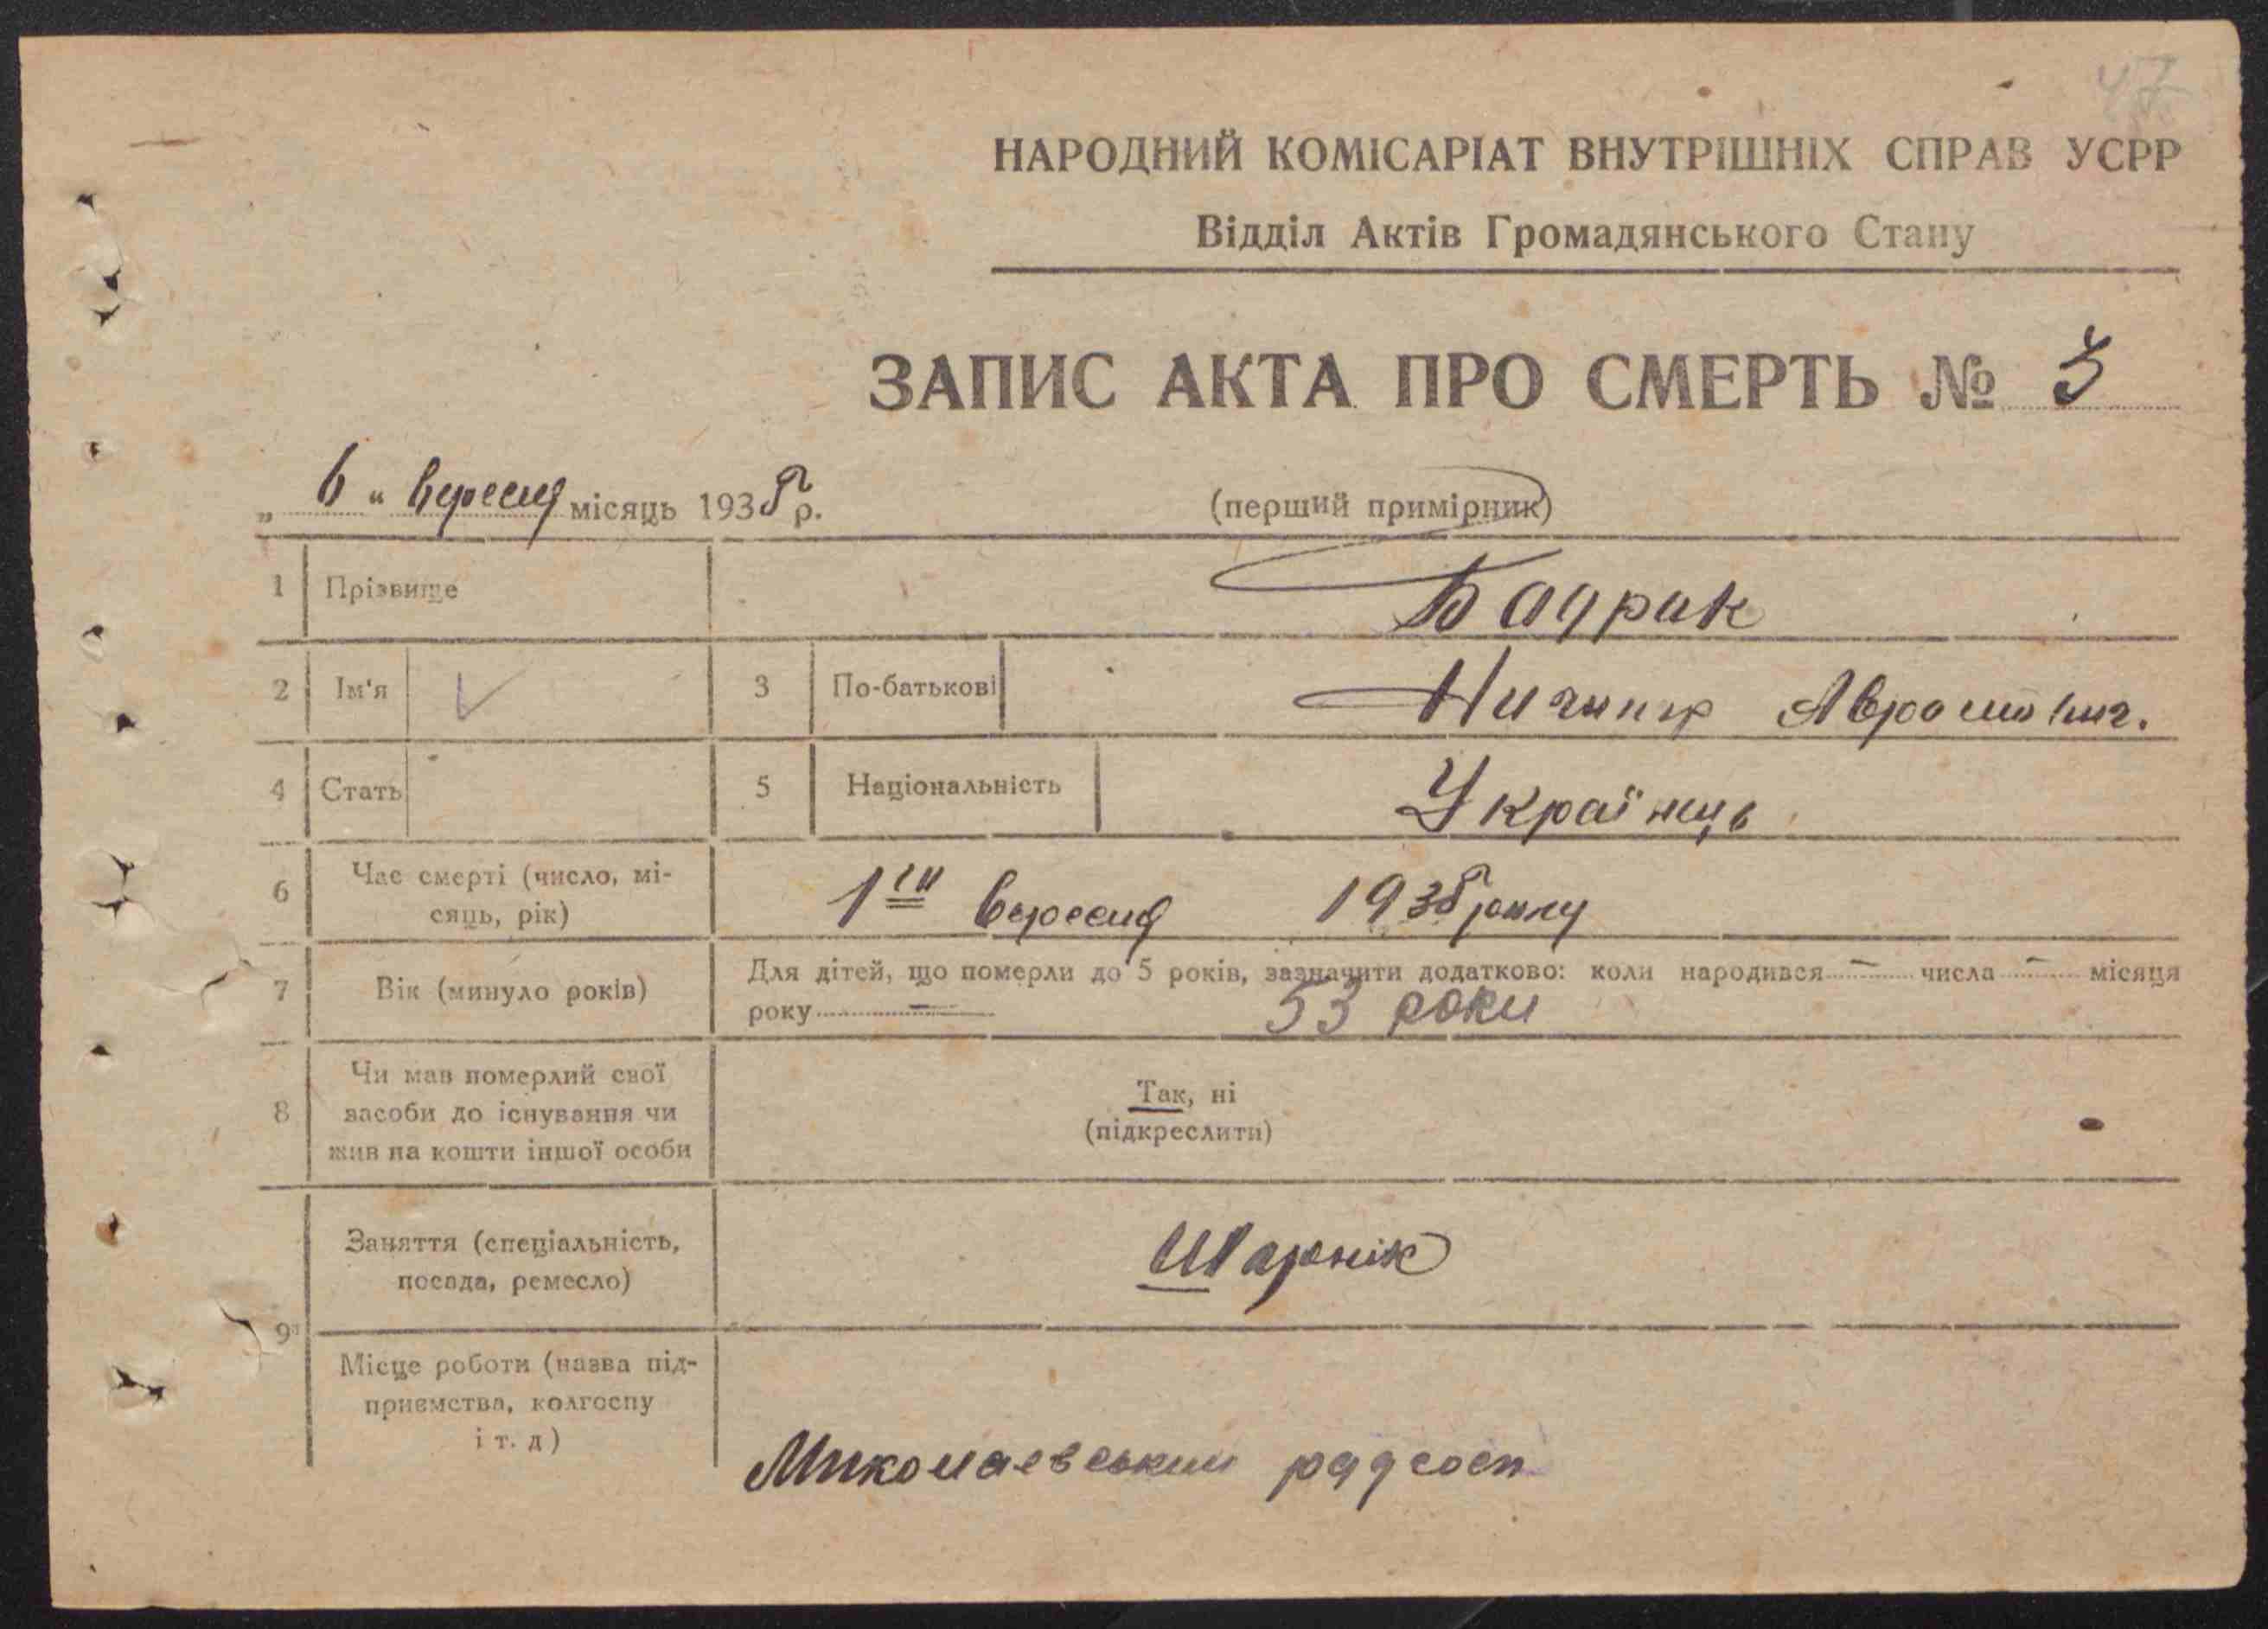 47
НАРОДНИЙ КОМІСАРІАТ ВНУТРІШНІХ СПРАВ УСРР
Відділ Актів Громадянського Стану
ЗАПИС АКТА ПРО СМЕРТЬ № 3
„ 6 “ вересня місяць 1935 р.
(перший примірник)
1 Прізвище Бадрак
2 Ім'я 3 По-батькові
4 Стать 5 Національність Українець
6 Час смерті (число, мі-
сяць, рік) 1го вересня 1935 року
7 Вік (минуло років) Для дітей, що померли до 5 років, зазначити додатково: коли народився — числа — місяця
року — 53 роки
8 Чи мав померлий свої
засоби до існування чи
жив на кошти іншої особи
Так, ні
(підкреслити)
9 Заняття (спеціальність,
посада, ремесло)
Місце роботи (назва під-
приємства, колгоспу
і т. д)
Миколаевський радгосп